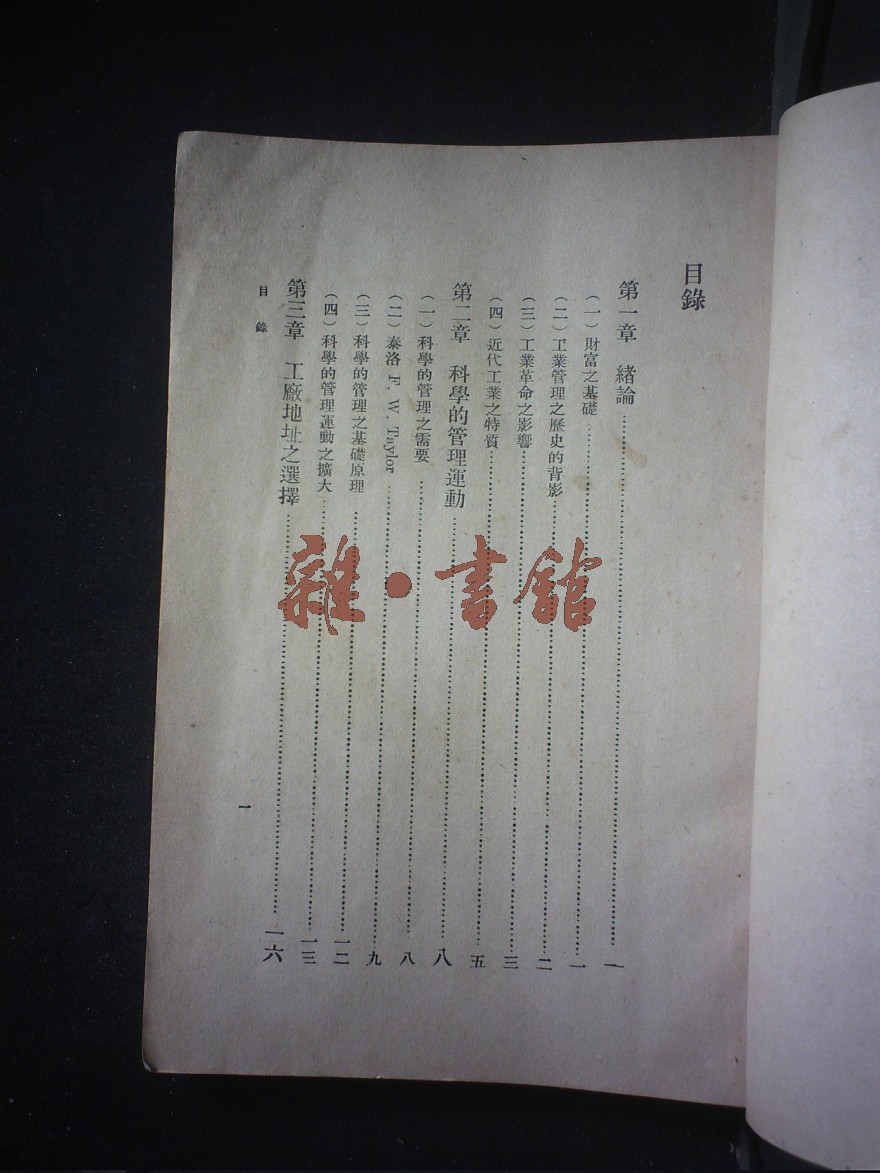 目錄
第一章　緒論……一
（一）財富之基礎……一
（二）工業管理之歷史的背影……二
（三）工業革命之影響……三
（四）近代工業之特質……五
第二章　科學的管理運動……八
（一）科學的管理之需要……八
（二）泰洛 F. W. Taylor……九
（三）科學的管理之基礎原理……一二
（四）科學的管理運動之擴大……一三
第三章　工廠地址之選擇……一六
目錄
一
雜・書館